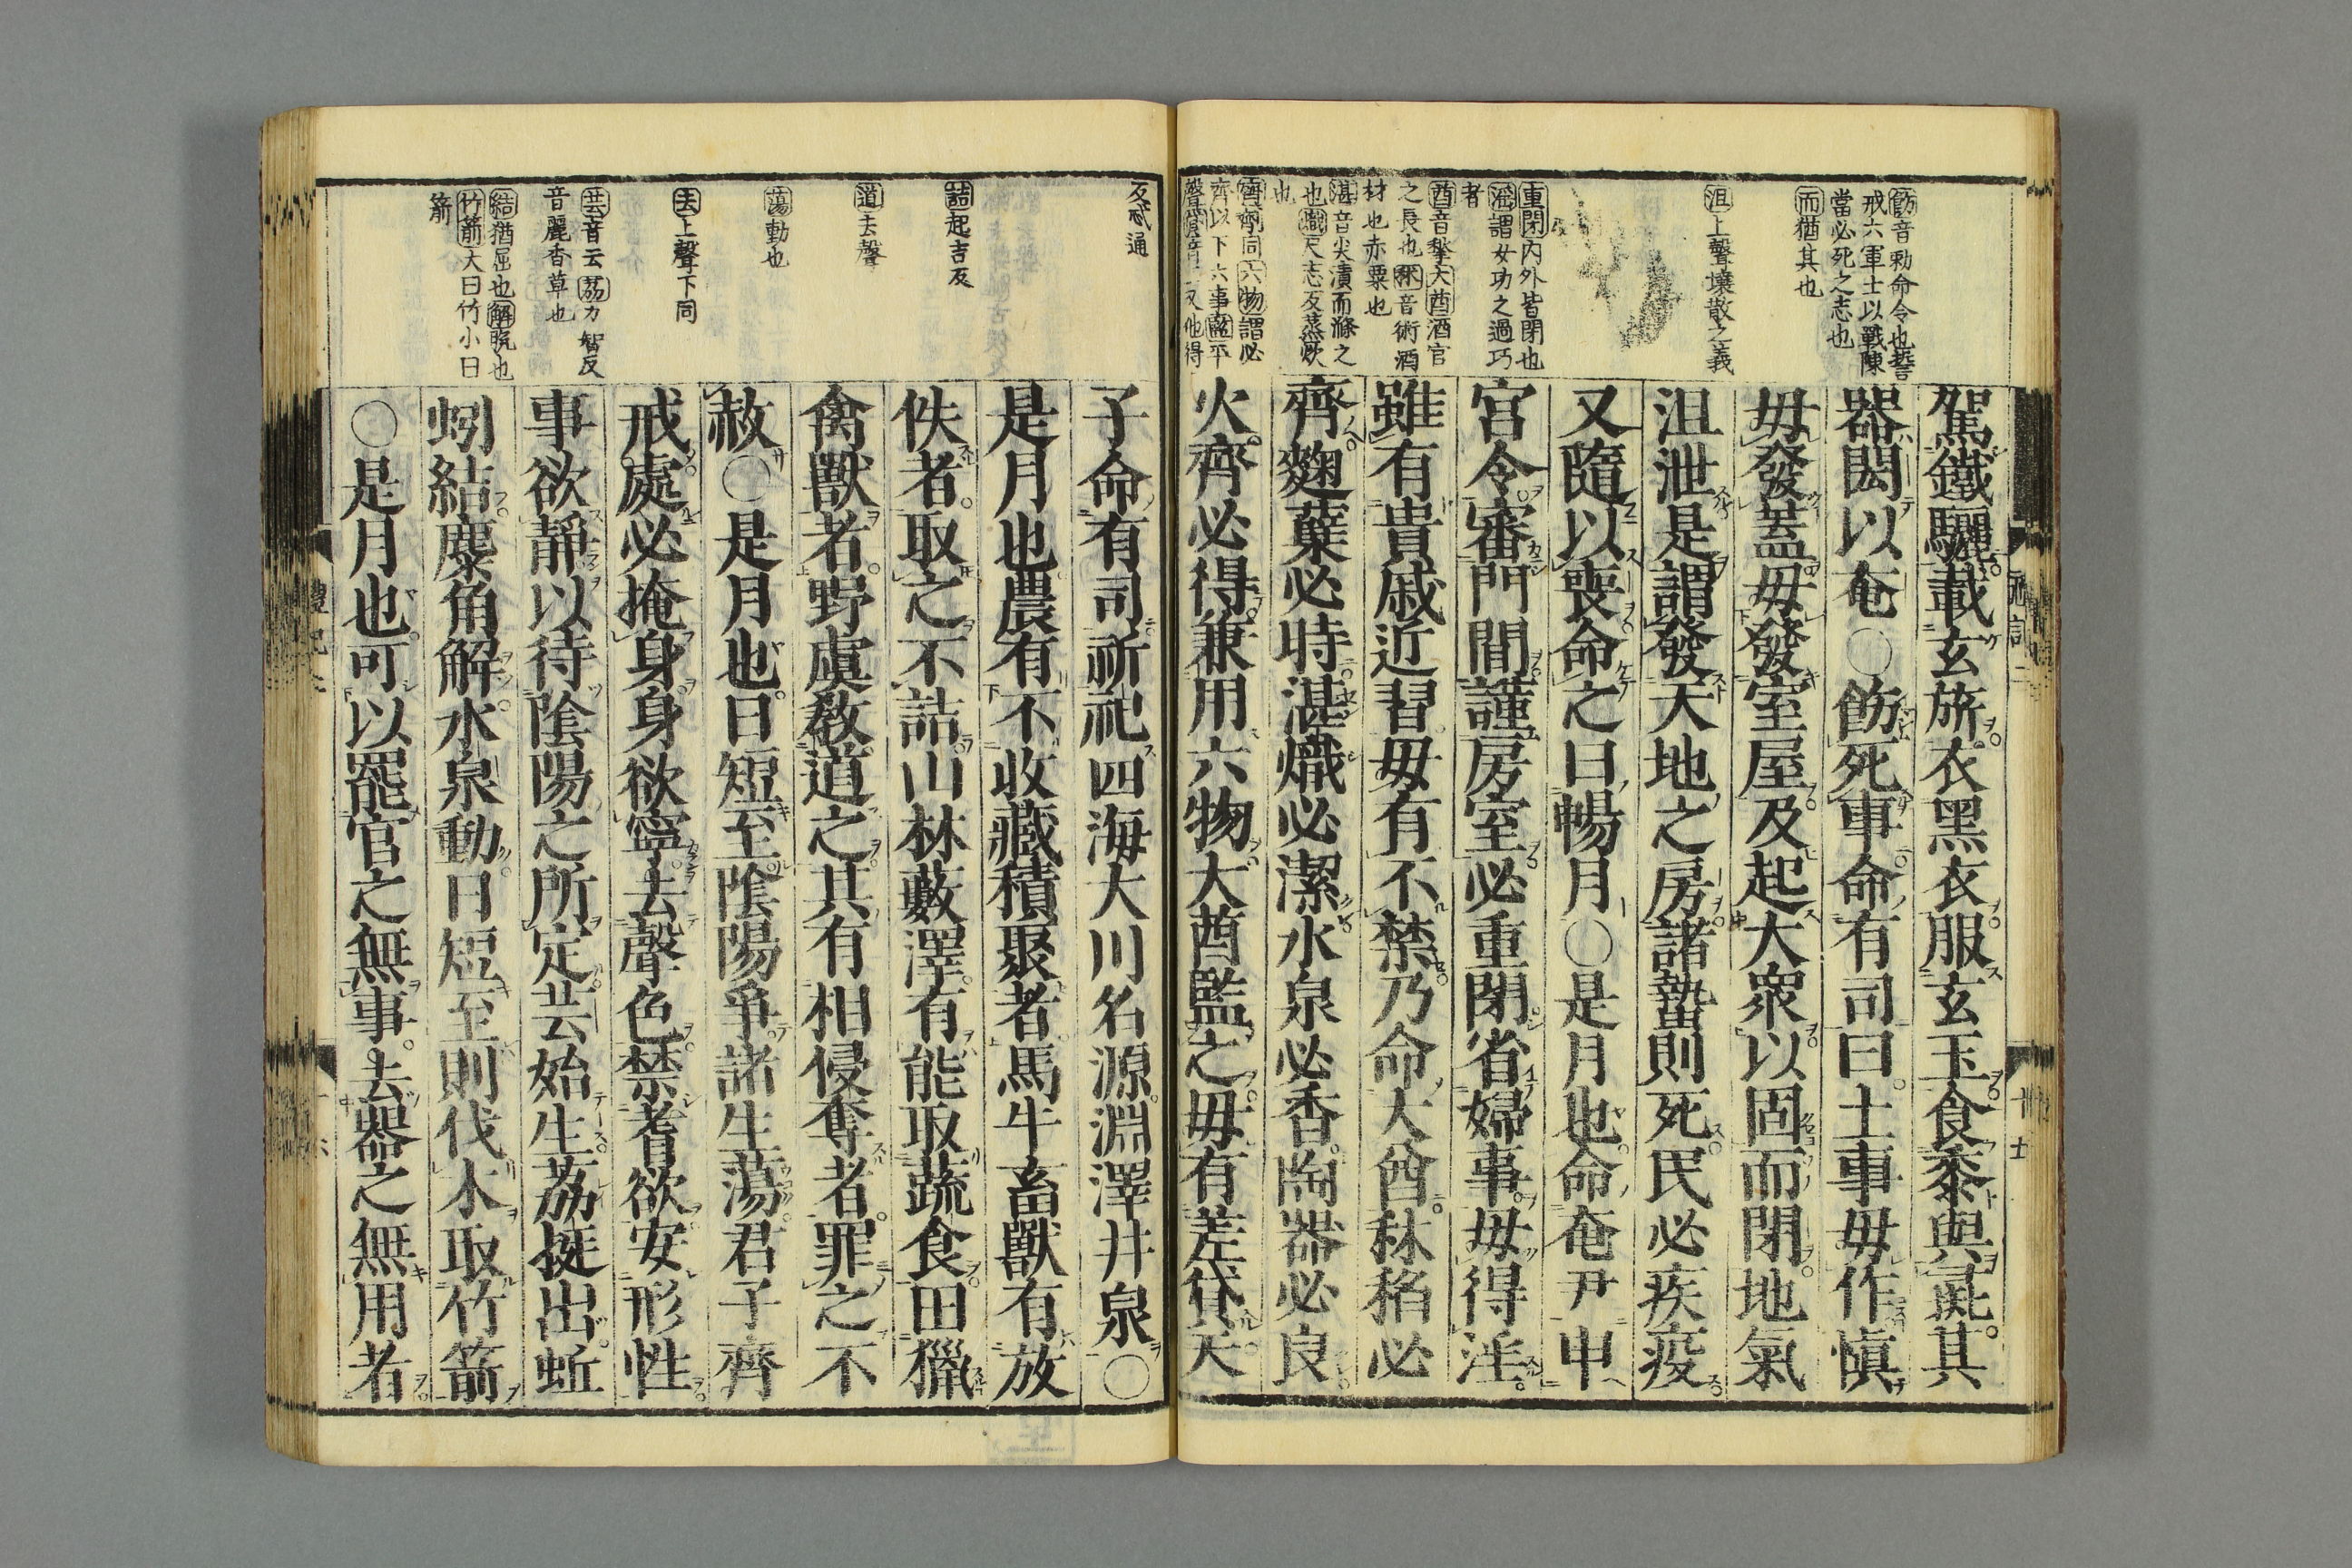 飭音勑命令也誓
戒六軍士以戰陳
當必死之志也
而猶其也
沮上聲壞散之義
重閉內外皆閉也
淫謂女功之過巧
者
酋音摮大酋酒官
之長也秫音術酒
材也赤粟也
湛音尖漬而滌之
也熾尺志反蒸炊
也
齊劑同六物謂必
齊以下六事監平
駕鐵驪載玄旂衣黑衣服玄玉食黍與彘其
器閎以奄○飭死事命有司曰土事毋作愼
毋發蓋毋發室屋及起大衆以固而閉地氣
沮泄是謂發天地之房諸蟄則死民必疾疫
又隨以喪命之曰暢月○是月也命奄尹申
宮令審門閭謹房室必重閉省婦事毋得淫
雖有貴戚近習毋有不禁乃命大酋秫稻必
齊麴蘖必時湛熾必潔水泉必香陶器必良
火齊必得兼用六物大酋監之毋有差貸天
反忒通
詰起吉反
道去聲
蕩動也
去上聲下同
芸音云荔力智反
音麗香草也
結猶屈也解脫也
竹箭大曰竹小曰
箭
子命有司祈祀四海大川名源淵澤井泉○
是月也農有不收藏積聚者馬牛畜獸有放
佚者取之不詰山林藪澤有能取蔬食田獵
禽獸者野虞敎道之其有相侵奪者罪之不
赦○是月也日短至陰陽爭諸生蕩君子齊
戒處必掩身身欲寧去聲色禁耆欲安形性
事欲靜以待陰陽之所定芸始生荔挺出蚯
蚓結麋角解水泉動日短至則伐木取竹箭
○是月也可以罷官之無事去器之無用者